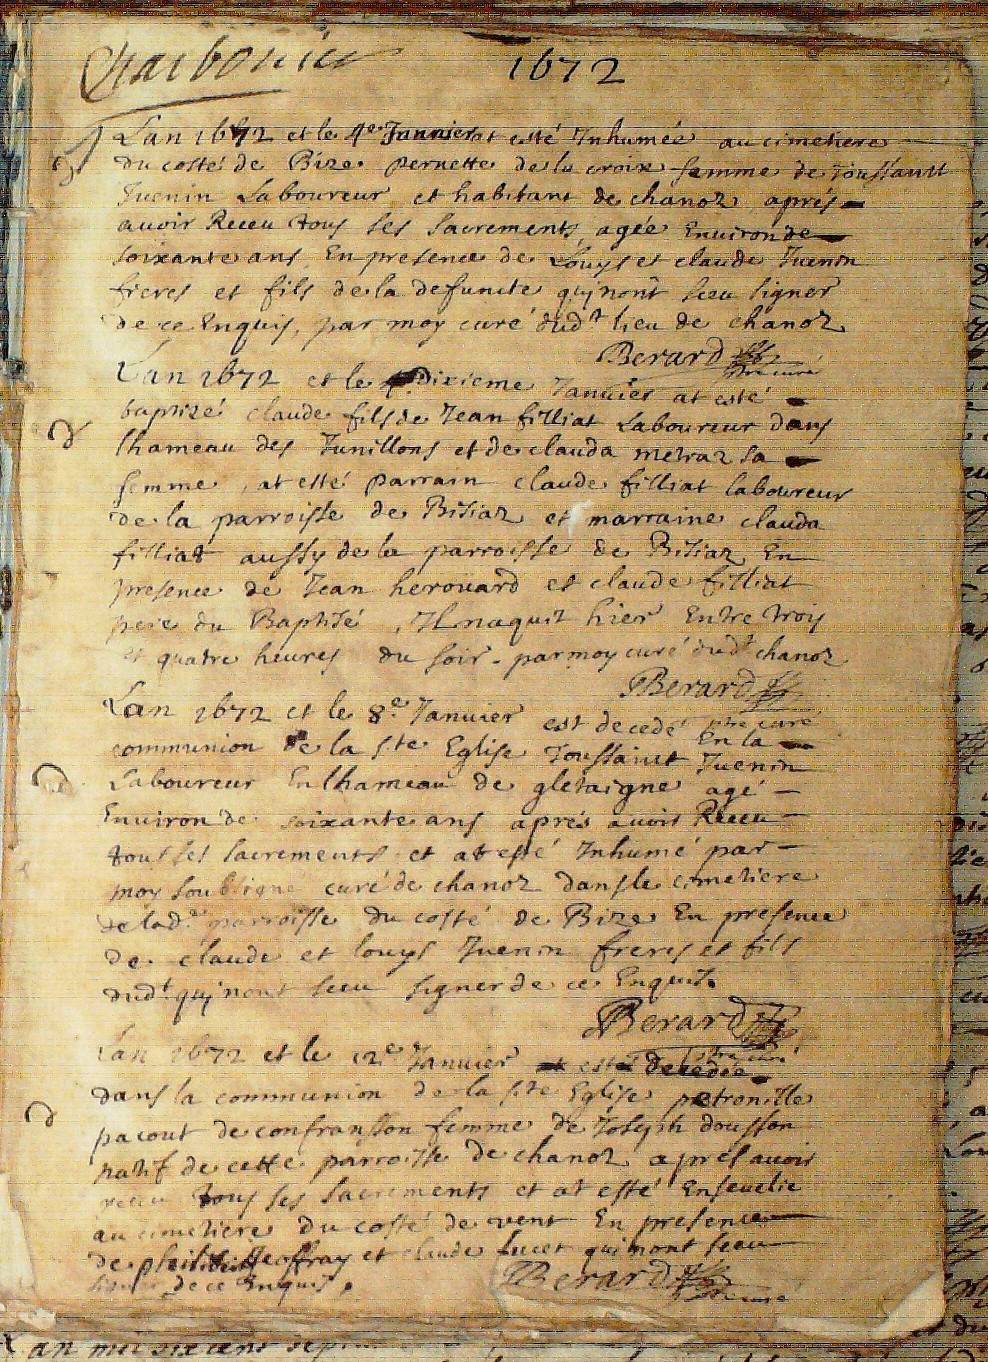 Charbonier 1672
Lan 1672 et le 4e Januier at esté Inhumée au cimetiere
du costé de Bize pernette de la croix femme de toussainct
Iuenin Laboureur et habitant de chanoz aprés
auoir Receu tous ses sacrements agée Enuiron de
soixante ans En presence de Louys et claude Iuenin
freres et fils de la defuncte quj nont sceu signer
de ce Enquis, par moy curé dudt lieu de chanoz
Berard
ptre curé
Lan 1672 et le dixieme Januier at esté
baptizé claude fils de Jean filliat Laboureur dans
lhameau des Junillons et de clauda metraz sa
femme, at esté parrain claude filliat laboureur
de la parroisse de Bisiaz et marraine clauda
filliat aussy de la parroisse de Bisiaz En
presence de Jean herouard et claude filliat
pere du Baptisé, Il naquit hier Entre trois
et quatre heures du soir. par moy curé dudt chanoz
Berard
ptre curé
Lan 1672 et le 8e Januier est decedé En la
communion de la ste Eglise Toussainct Iuenin
Laboureur En lhameau de gletaigne agé
Enuiron de soixante ans aprés auoir Receu
tous ses sacrements et at esté Inhumé par
moy soubsigne curé de chanoz dans le cimetiere
de ladt parroisse du costé de Bize En presence
de claude et louys Iuenin freres et fils
dudt quj nont sceu signer de ce Enquis.
Berard
ptre curé
Lan 1672 et le 12e Januier est decedée
dans la communion de la ste Eglise petronille
pacout de confransson femme de Joseph dousson
natif de cette parroisse de chanoz aprés auoir
receu tous ses sacrements et at esté Enseuelie
au cimetiere du costé de vent En presence
de geoffray et claude lucet qui nont sceu
signer de ce Enquis.
Berard
ptre curé
an mil six cent sep